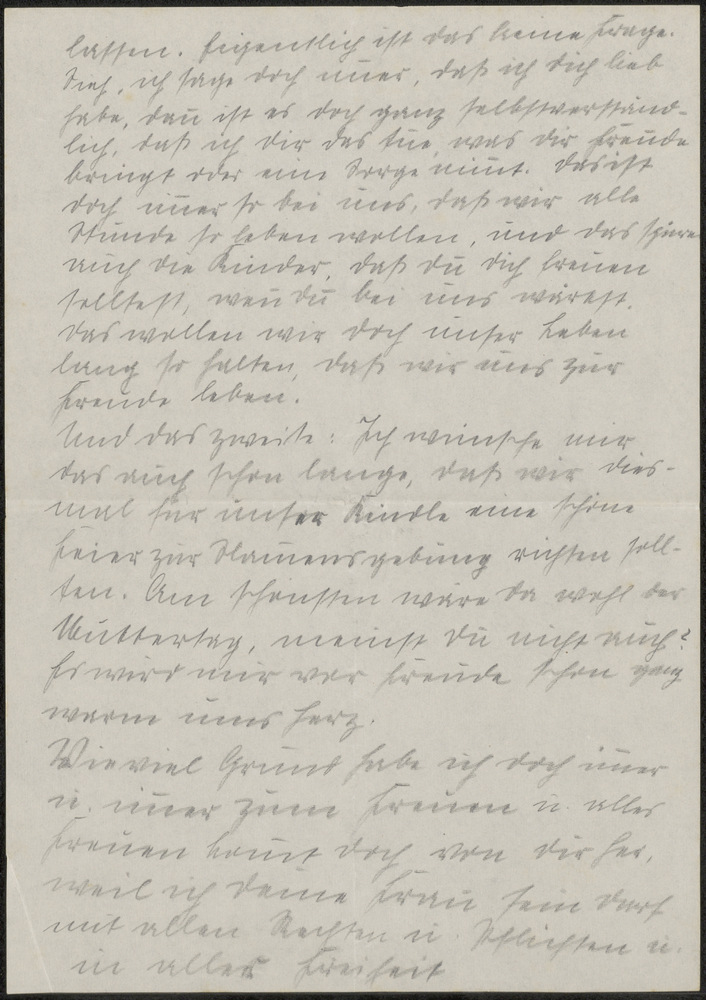 lassen. Eigentlich ist das keine Frage.
Sieh, ich sage doch im̅er, daß ich dich lieb
habe, dan̅ ist es doch ganz selbstverständ-
lich, daß ich dir das tue, was dir Freude
bringt oder eine Sorge nim̅t. Das ist
doch im̅er so bei uns, daß wir alle
Stunde so leben wollen, und das spüren
auch die Kinder, daß du dich freuen
solltest, wen̅ du bei uns wärest.
Das wollen wir doch unser Leben
lang so halten, daß wir uns zur
Freude leben.
Und das zweite: Ich wünsche mir
das auch schon lange, daß wir dies-
mal für unser Kindle eine schöne
Feier zur Namensgebung richten soll-
ten. Am schönsten wäre da wohl der
Muttertag, meinst du nicht auch?
Es wird mir vor Freude schon ganz
warm ums Herz.
Wieviel Grund habe ich doch im̅er
u. im̅er zum Freuen u. alles
Freuen kom̅t doch von dir her,
weil ich deine Frau sein darf
mit allen Rechten u. Pflichten u.
in aller Freiheit